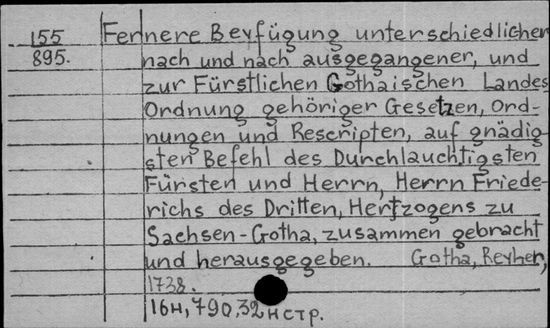 155 Fernere Beyfügung unterschiedlicher
895. nach und nach ausgegangener, und
zur Fürstlichen Gothaischen Landes
Ordnung gehöriger Gesetzen, Ord-
nungen und Rescripten, auf gnädig-
sten Befehl des Durchlauchtigsten
Fürsten und Herrn, Herrn Friede-
richs des Dritten, Hertzogens zu
Sachsen-Gotha, zusammen gebracht
und herausgegeben. Gotha, Reyher,
1738.
16н, 790, 32 н стр.